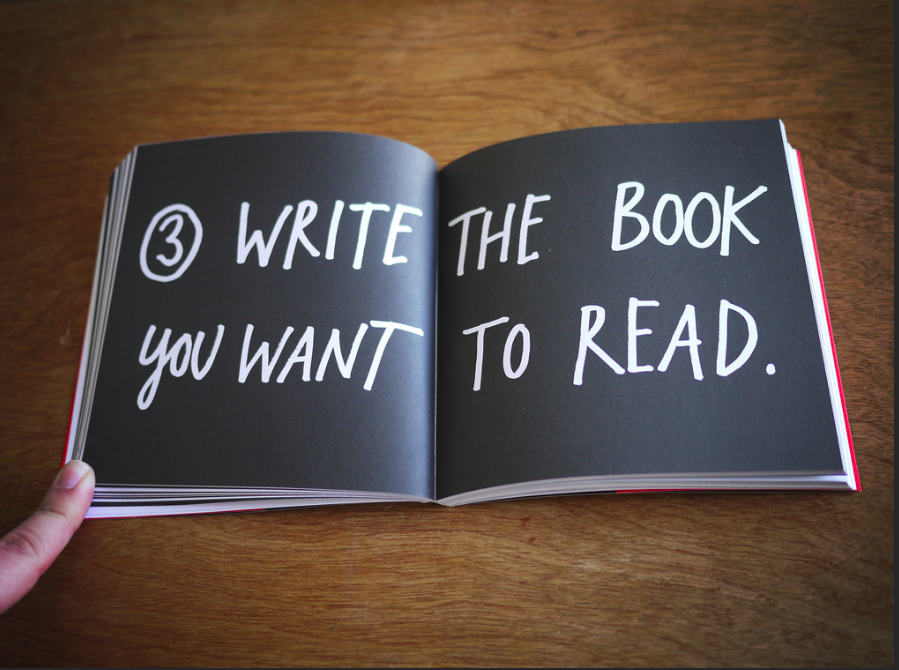 ③ WRITE THE BOOK
YOU WANT TO READ.